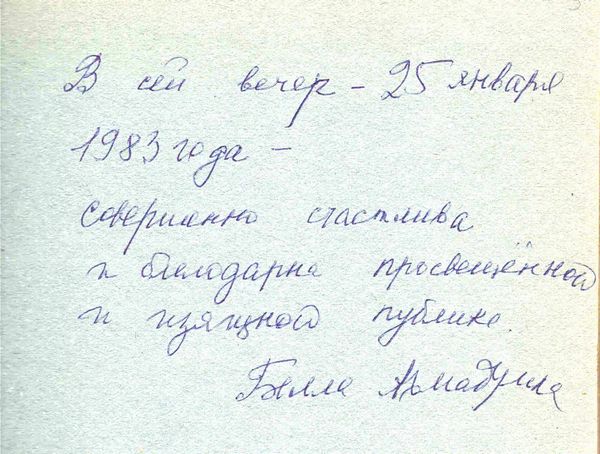 В сей вечер – 25 января
1983 года –
совершенно счастлива
и благодарна просвещённой
и изящной публике.
Белла Ахмадулина